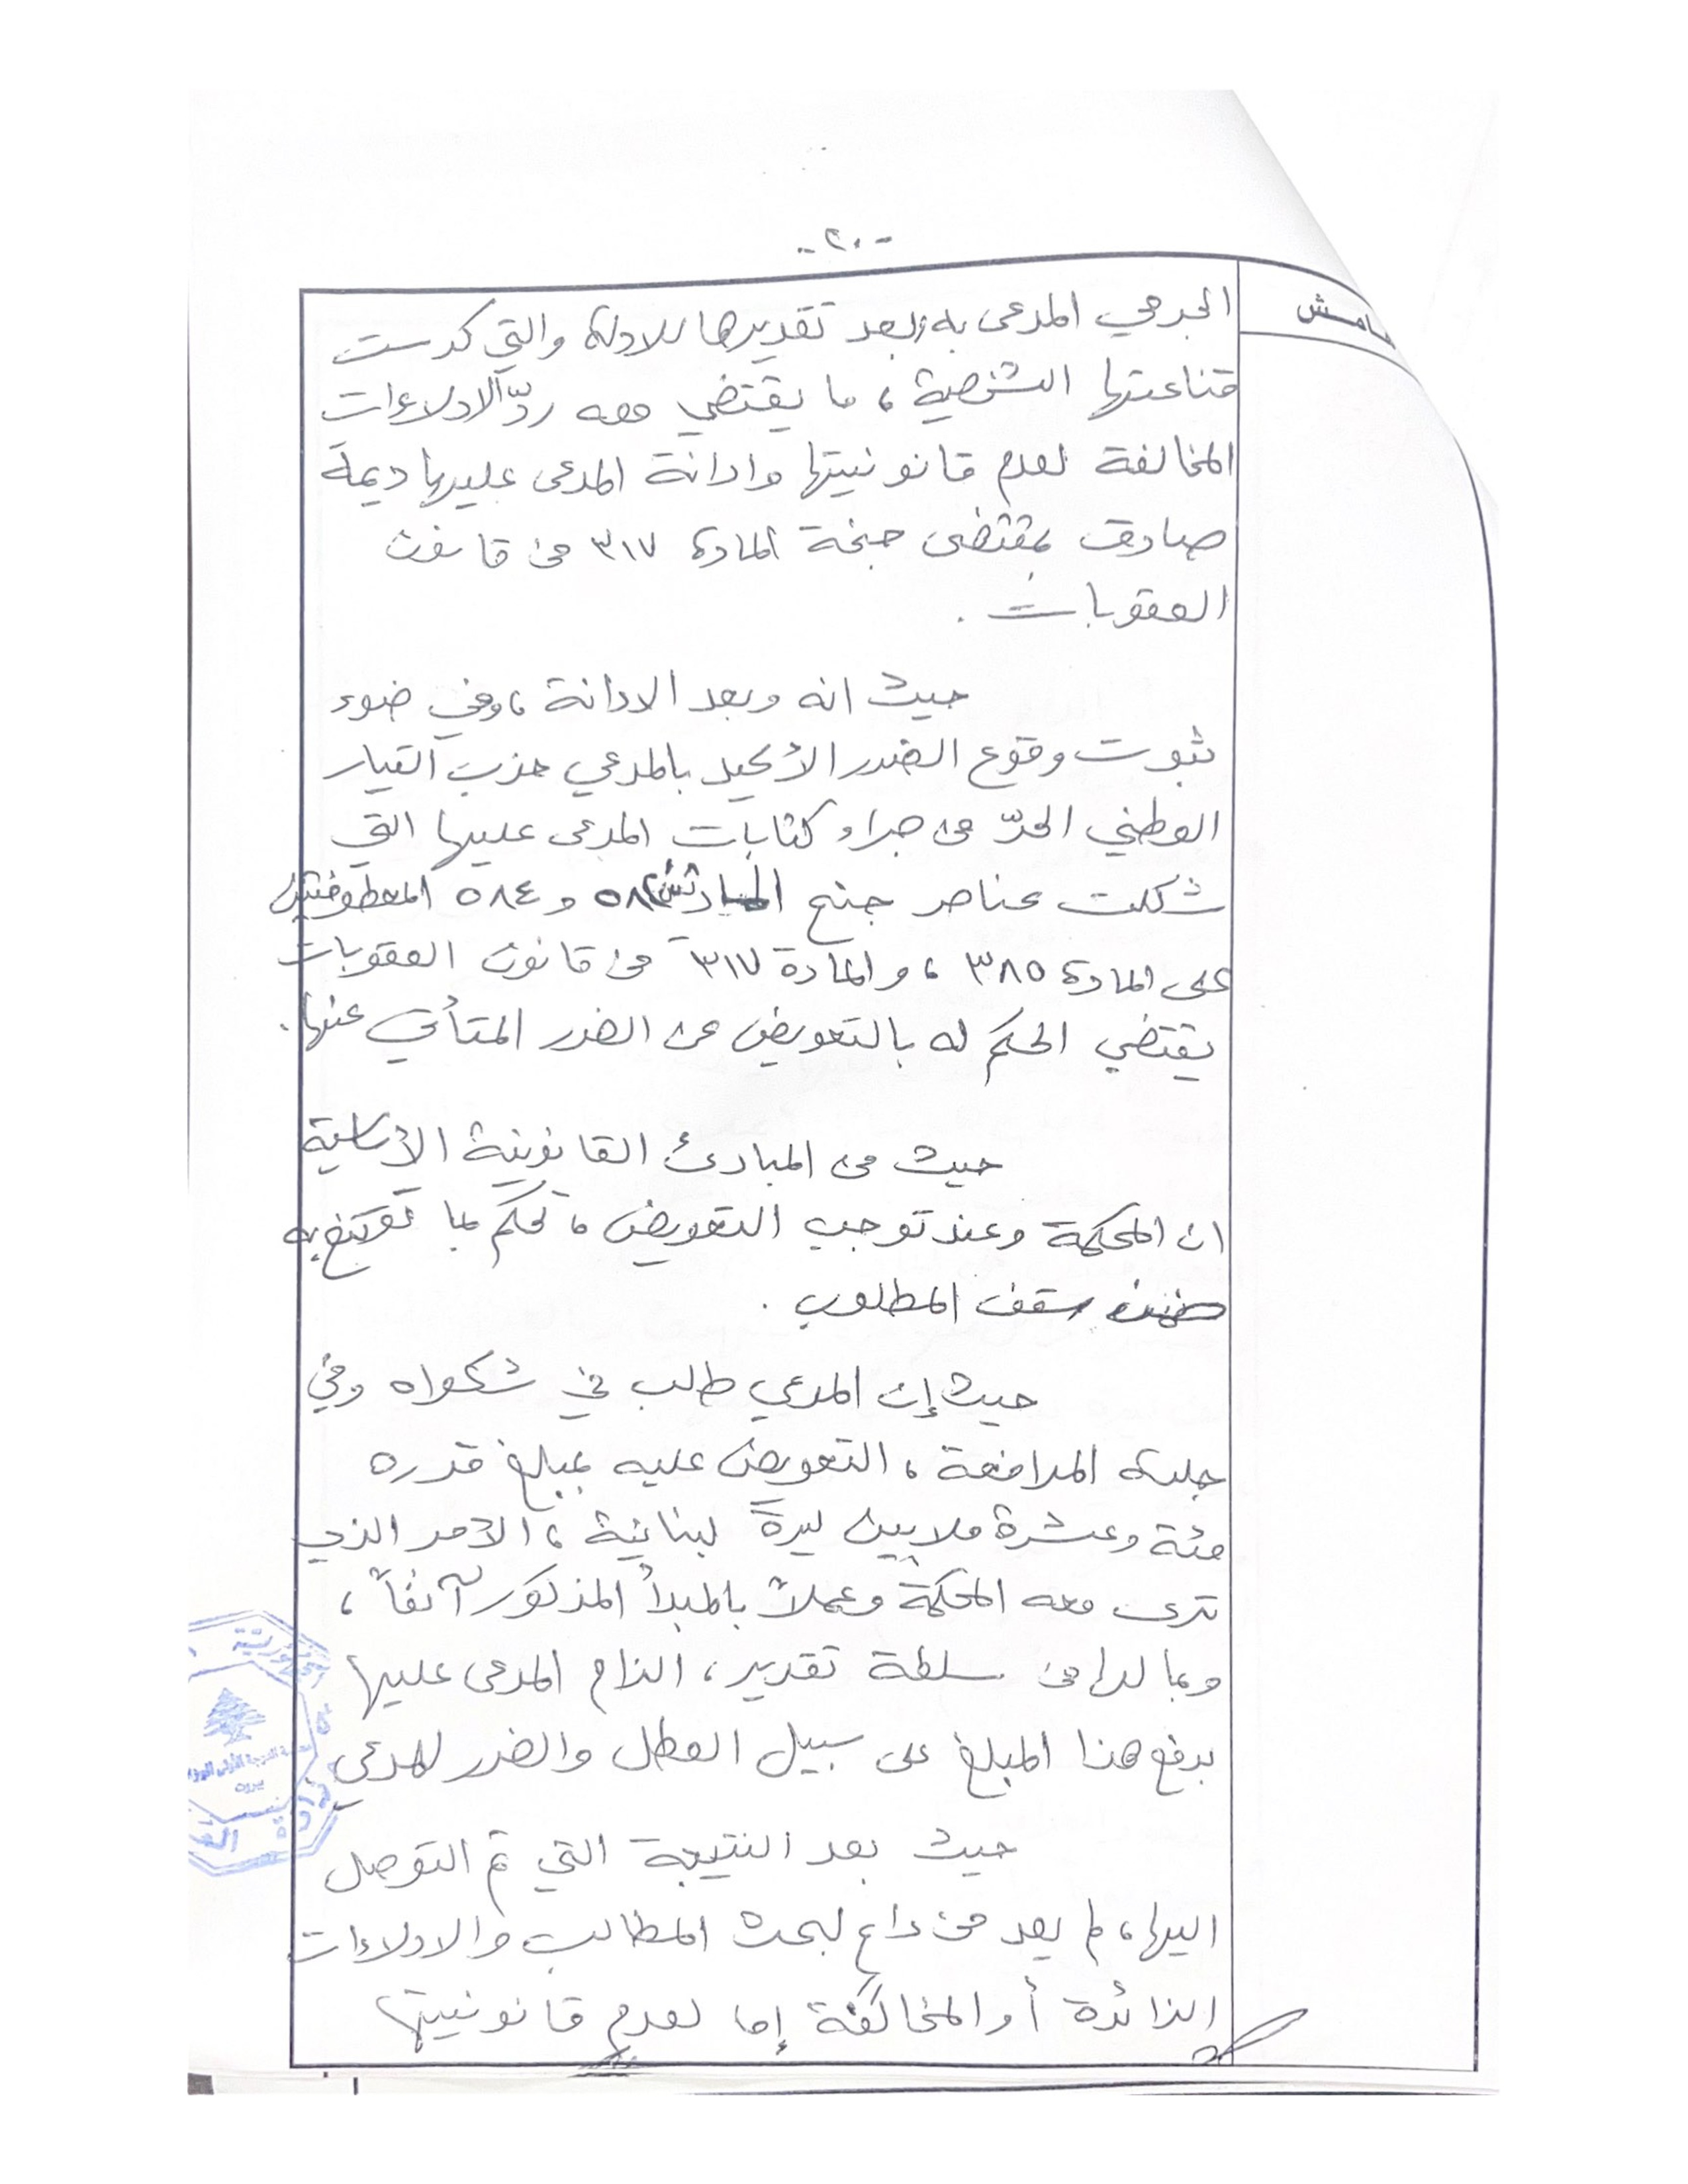 -٢٠-
هامش
الجرمي المدعى به وبعد تقديرها للادلة والتي كرست
قناعتها الشخصية، ما يقتضي معه ردّ الادلاءات
المخالفة لعدم قانونيتها وادانة المدعى عليها ديمة
صادق بمقتضى جنحة المادة ٣١٧ من قانون
العقوبات.
حيث انه وبعد الادانة، وفي ضوء
ثبوت وقوع الضرر الأكيد بالمدعي حزب التيار
الوطني الحرّ من جراء كتابات المدعى عليها التي
شكلت عناصر جنح المادتين ٥٨٢ و ٥٨٤ المعطوفتين
على المادة ٣٨٥، والمادة ٣١٧ من قانون العقوبات
يقتضي الحكم له بالتعويض عن الضرر المتأتي عنها.
حيث من المبادئ القانونية الأساسية
ان المحكمة وعند توجب التعويض، تحكم بما تقتنع به
ضمن سقف المطلوب.
حيث إن المدعي طالب في شكواه وفي
جلسة المرافعة، التعويض عليه بمبلغ قدره
مئة وعشرة ملايين ليرة لبنانية، الأمر الذي
ترى معه المحكمة وعملاً بالمبدأ المذكور آنفاً،
وبما لها من سلطة تقدير، الزام المدعى عليها
بدفع هذا المبلغ على سبيل العطل والضرر للمدعي
حيث بعد النتيجة التي تم التوصل
اليها، لم يعد من داع لبحث المطالب والادلاءات
الزائدة أو المخالفة إما لعدم قانونيتها
بيروت